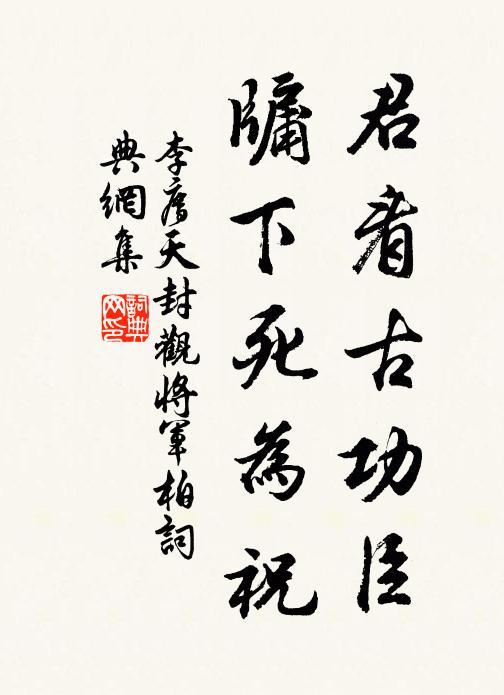 君看古功臣
牖下死為祝
李廌天封觀將軍柏詞
典網集
詞典網印